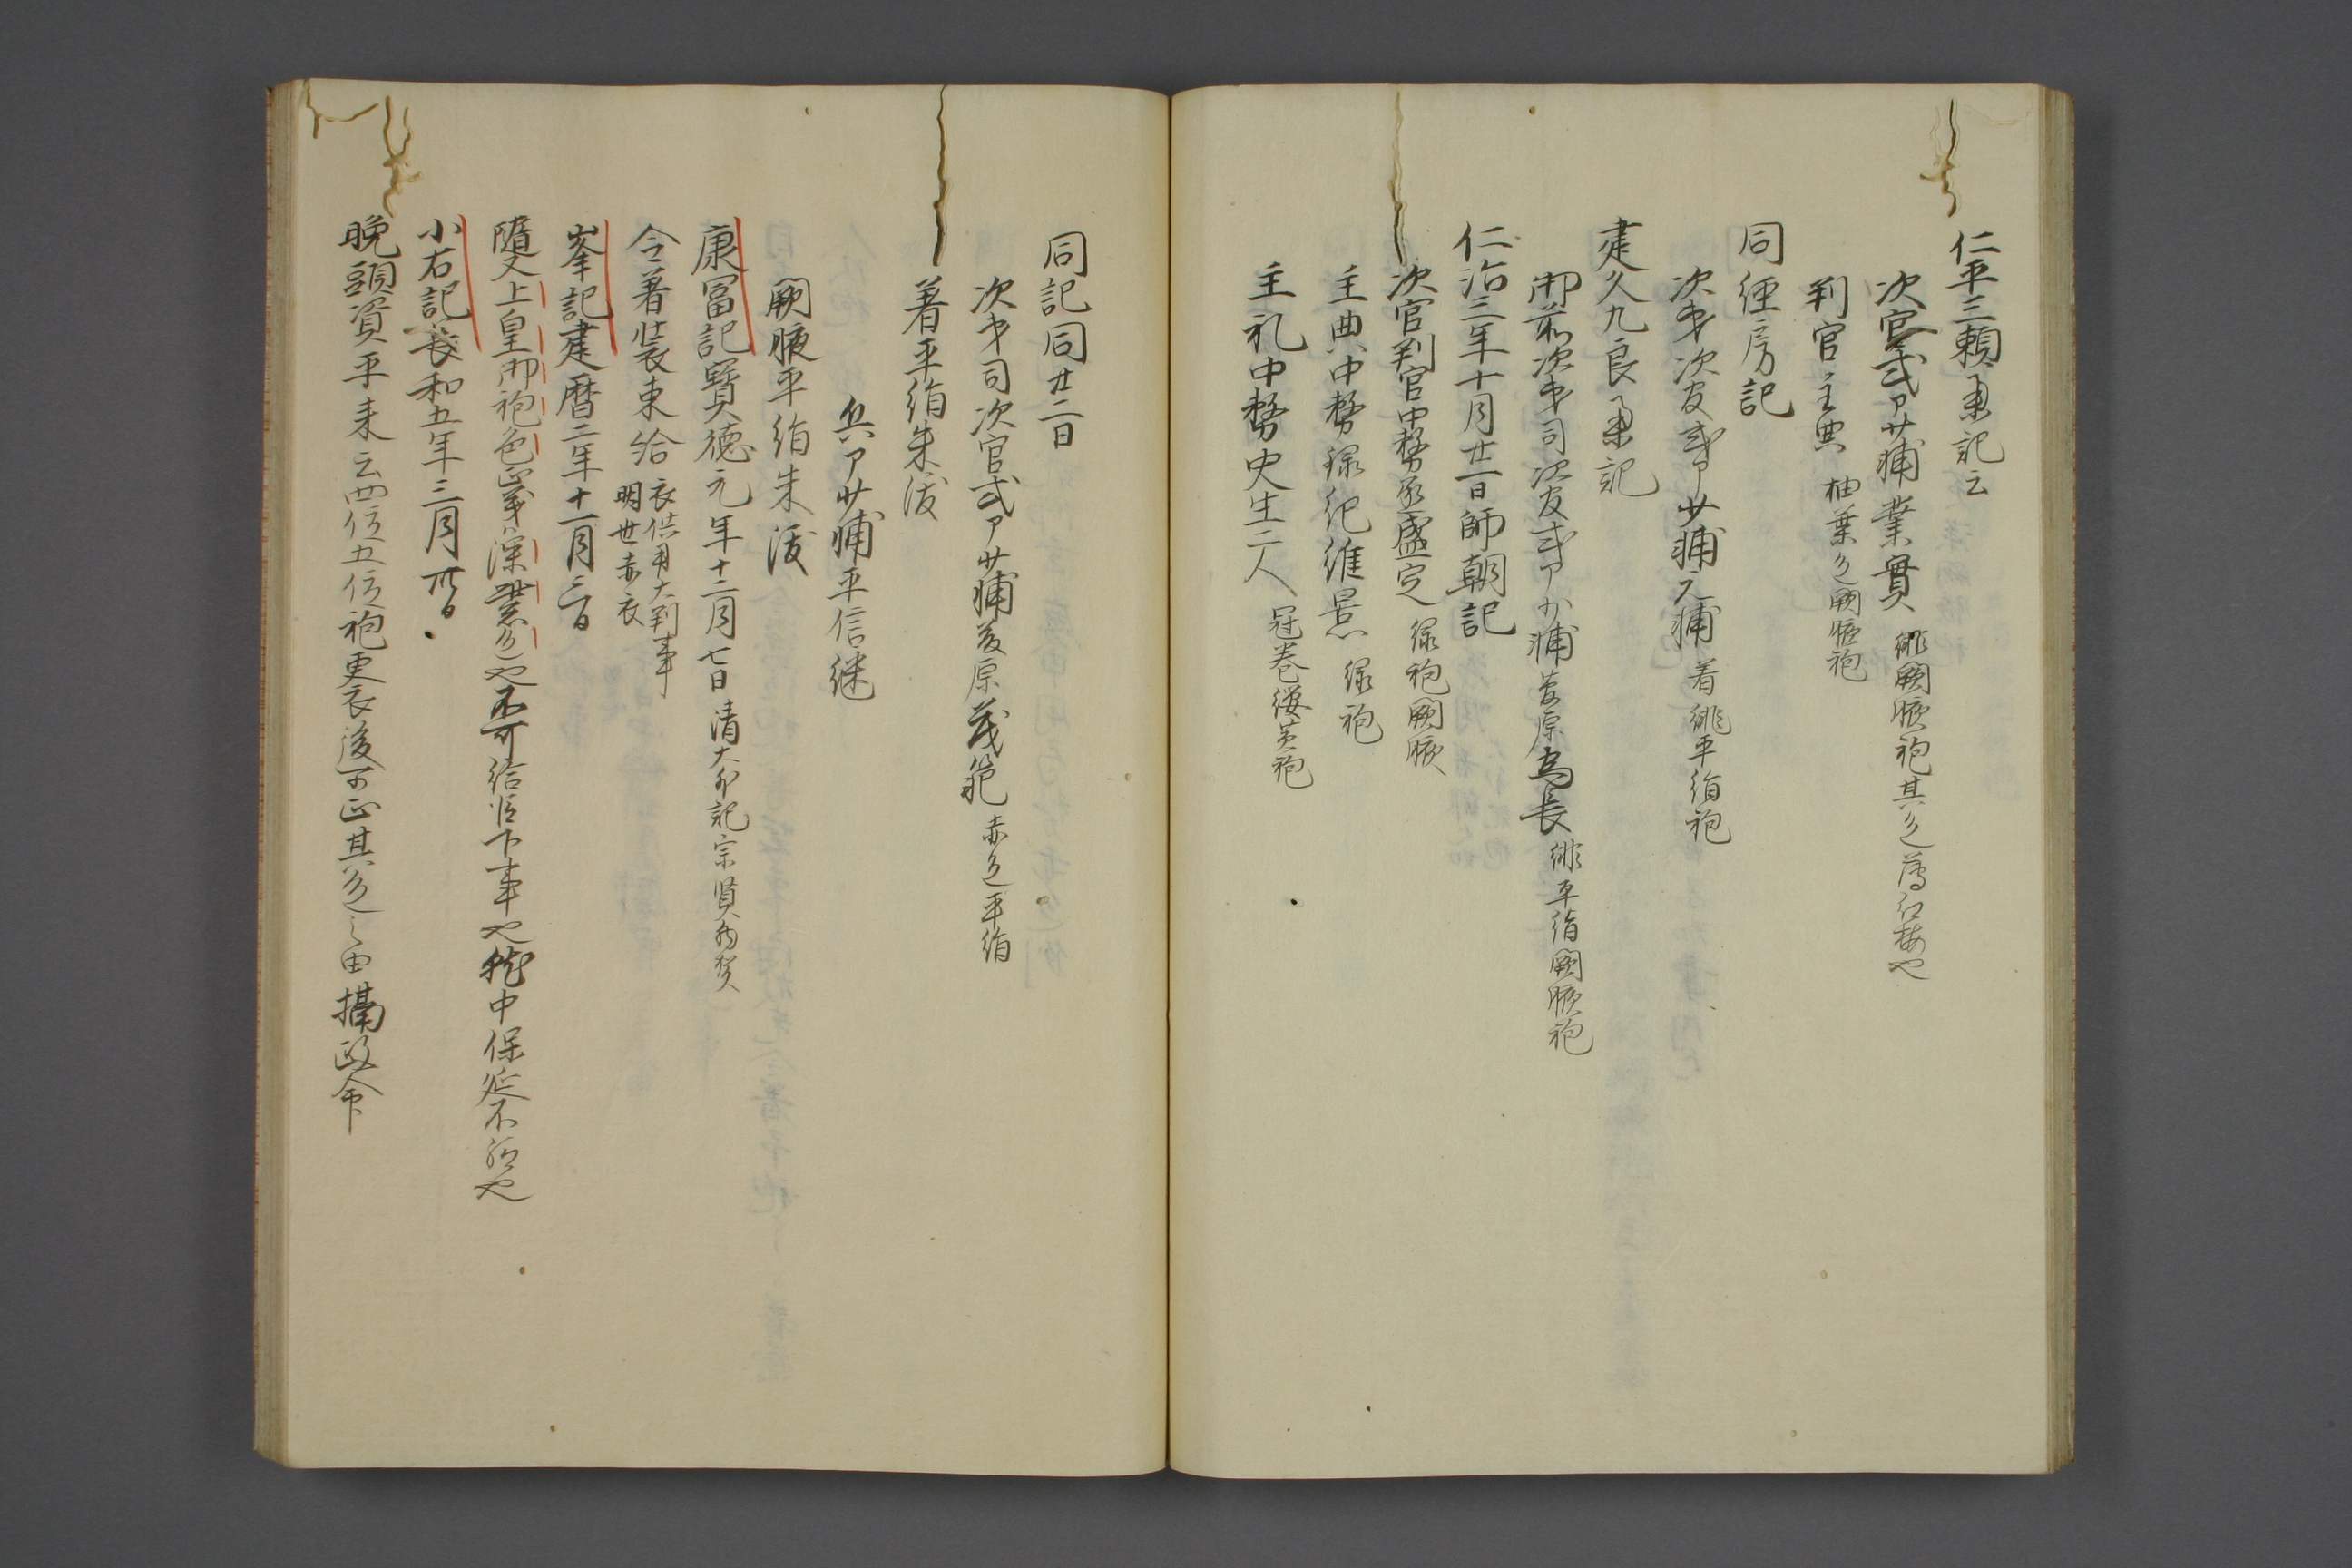 仁平三頼業記云
次官式ア少輔業實 緋闕腋袍其色薄紅梅也
判官主典 柚葉色闕腋袍
同経房記
次第次官式ア少輔又輔 着緋平絹袍
建久九良業記
御前次第司次官式ア少輔菅原為長 緋平絹闕腋袍
仁治三年十月廿一日師朝記
次官判官中務丞盛定 緑袍闕腋
主典中務録紀維景 緑袍
主礼中務史生二人 冠巻纓黄袍
同記同廿二日
次第司次官式ア少輔菅原茂範 赤色平絹
着平絹朱
兵ア少輔平信継
闕腋平絹朱
康冨記寶徳元年十二月七日清大外記宗賢為賀
令着装束給 衣供用大判事明世赤衣
峯記建暦二年十一月三日
隨又上皇御袍色必深蘇芳色也不可給臣下事也就中保延不給也
小右記長和五年三月
晩頭資平来云四位五位袍更衣後可正其色之由摂政命